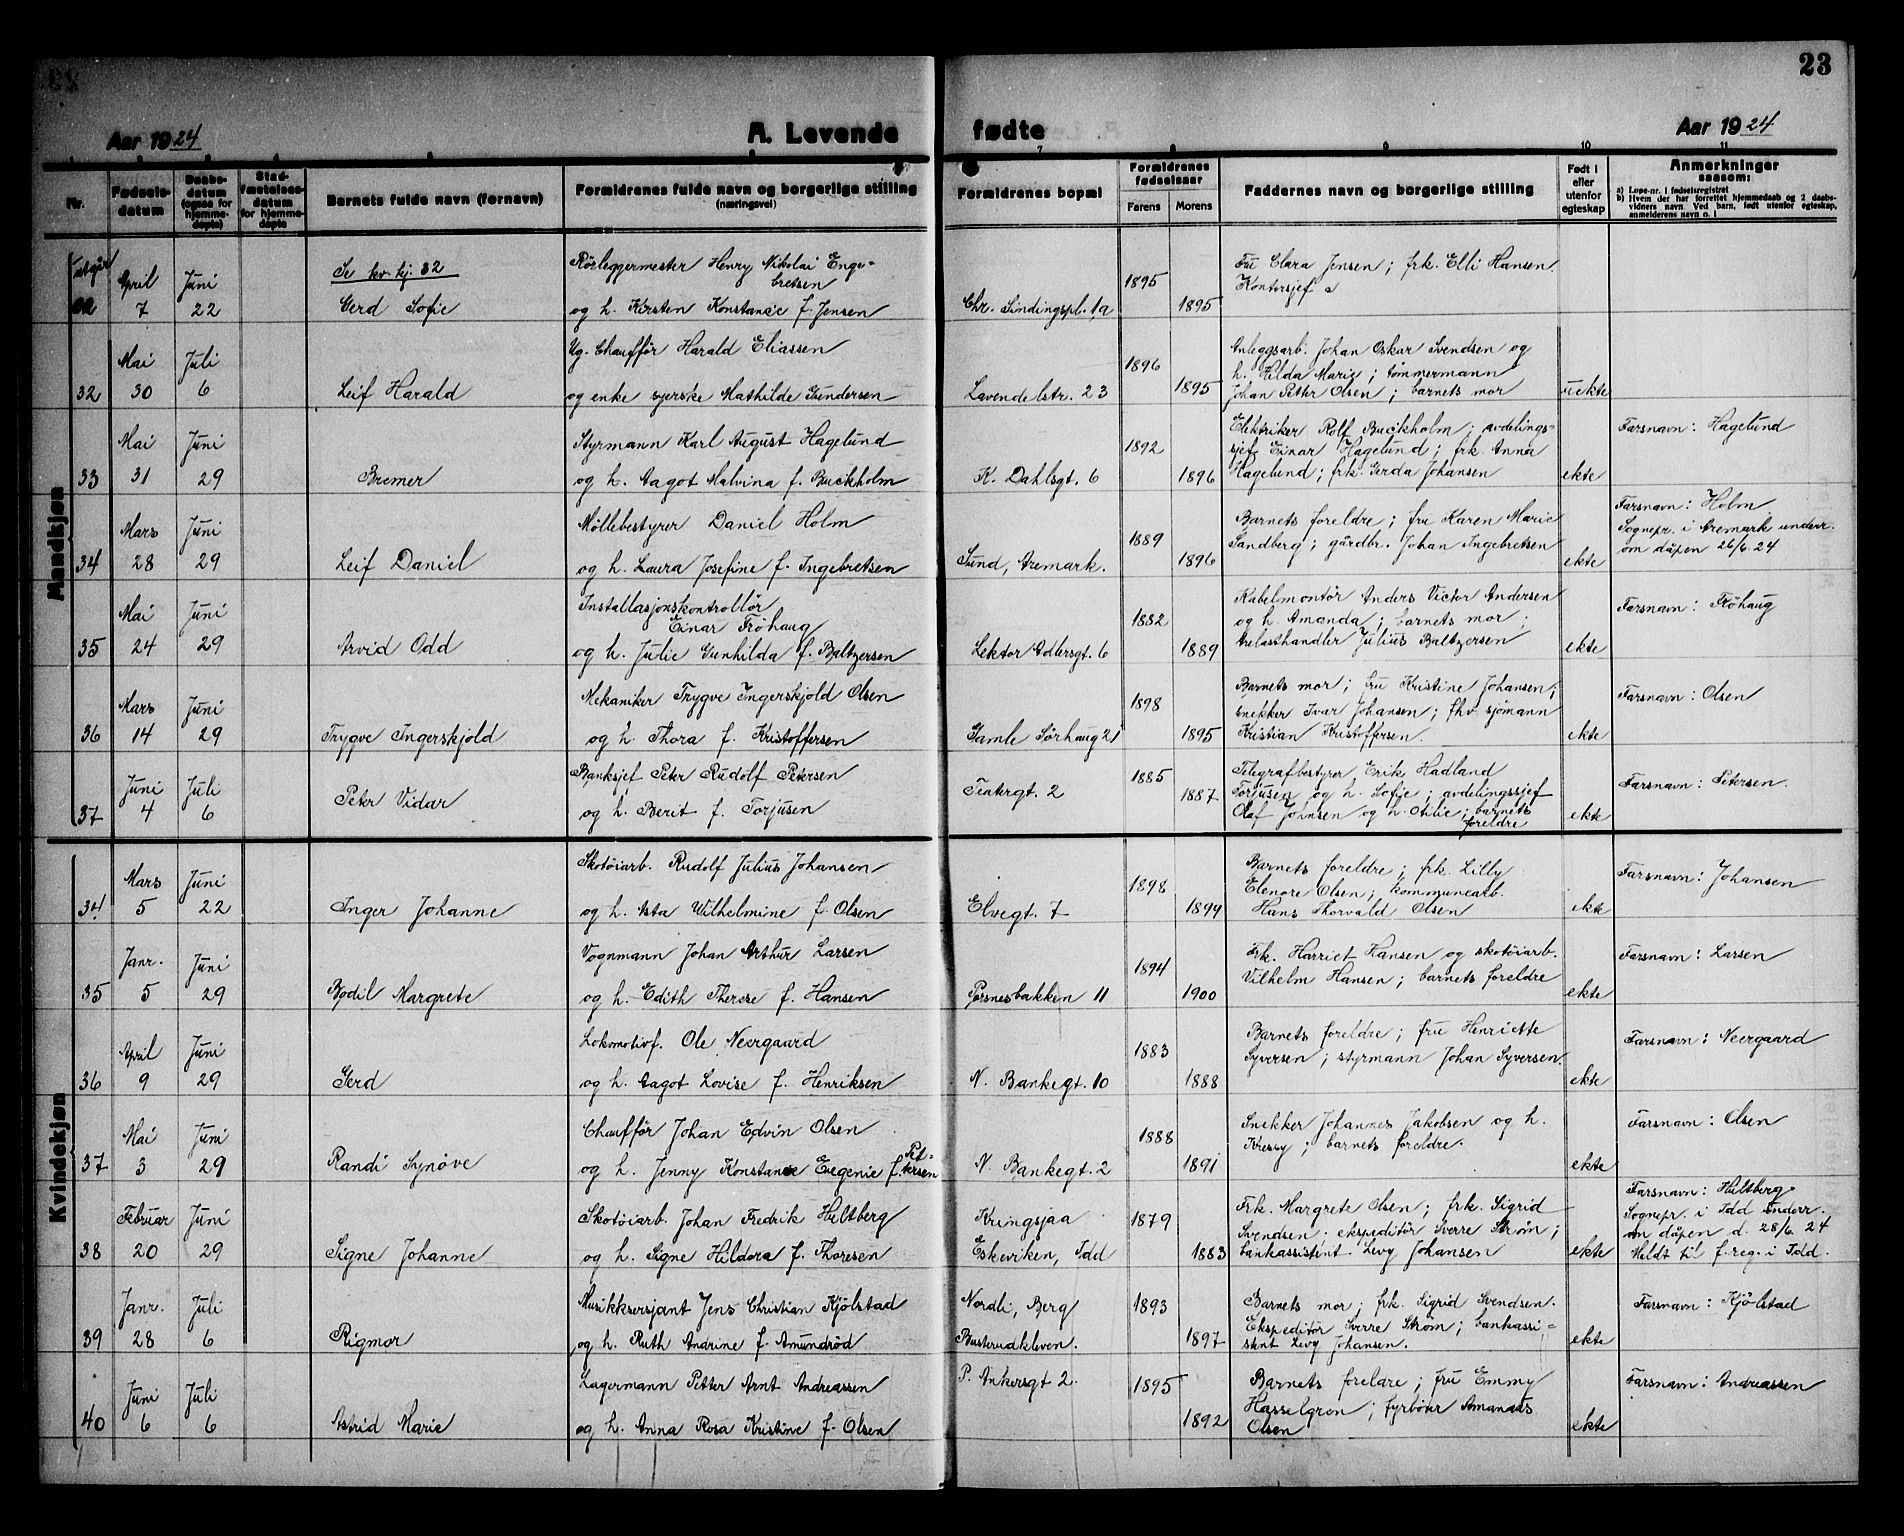 23
Aar 1924
A. Levende
fødte
Aar 1924
7
8
9
10
11
Nr.
Fødsels-
datum
Daabs-
datum
(ogsaa for
hjemme-
døpte)
Stad-
fæstelses-
datum
for hjemme-
døpte
Barnets fulde navn (fornavn)
Forældrenes fulde navn og borgerlige stilling
(næringsvei)
Forældrenes bopæl
Forældrenes
fødselsaar
Farens
Morens
Faddernes navn og borgerlige stilling
Født i
eller
utenfor
egteskap
Anmerkninger
saasom:
a) Løpe-nr. i fødselsregistret
b) Hvem der har forrettet hjemmedaab og 2 daabs-
vidners navn. Ved barn, født utenfor egteskap,
anmelderens navn o. l.
Mandkjøn
utgår
April
7
Juni
22
Se kv. kj. 32
Gerd Sofie
Rörleggermester Henry Nikolai Enge-
bretsen
og h. Kirsten Konstance f. Jensen
Chr. Sindingspl. 1a
1895
1895
Fru Clara Jensen; frk. Elli Hansen.
Kontorsjef
32
Mai
30
Juli
6
Leif Harald
Ug. Chaufför Harald Eliassen
og enke syerske Mathilde Gundersen
Lavendelstr. 23
1896
1895
Anleggsarb. Johan Oskar Svendsen og
h. Hilda Marie; tömmermann
Johan Petter Olsen; barnets mor
uekte
33
Mai
31
Juni
29
Bremer
Styrmann Karl August Hagelund
og h. Aagot Malvina f. Buckholm
K. Dahlsgt. 6
1892
1896
Elektriker Rolf Buckholm; avdelings-
sjef Einar Hagelund; frk. Anna
Hagelund; frk. Gerda Johansen
ekte
Farsnavn: Hagelund
34
Mars
28
Juni
29
Leif Daniel
Møllebestyrer Daniel Holm
og h. Laura Josefine f. Ingebretsen
Sund, Aremark.
1889
1896
Barnets foreldre; fru Karen Marie
Sandberg; gårdbr. Johan Ingebretsen
ekte
Farsnavn: Holm.
Sognepr. i Aremark underr.
om dåpen 26/6. 24
35
Mai
24
Juni
29
Arvid Odd
Installasjonskontrollör
Einar Fröhaug
og h. Julie Gunhilda f. Baltzersen
Lektor Adlersgt. 6
1882
1889
Kabelmontör Anders Victor Andersen
og h. Amanda; barnets mor;
Avlasthandler Julius Baltzersen
ekte
Farsnavn: Fröhaug
36
Mars
14
Juni
29
Trygve Ingerskjold
Mekaniker Trygve Ingerskjold Olsen
og h. Thora f. Kristoffersen
Gamle Sörhaug 21
1898
1895
Barnets mor; fru Kristine Johansen;
snekker Ivar Johansen; fhv. sjömann
Kristian Kristoffersen.
ekte
Farsnavn: Olsen
37
Juni
4
Juli
6
Peter Vidar
Banksjef Peter Rudolf Petersen
og h. Berit f. Torjusen
Teatergt. 2
1885
1887
Telegrafbestyrer Erik Hadland
Torjusen og h. Sofie; avdelingssjef
Olaf Johnsen og h. Otilie; barnets
foreldre
ekte
Farsnavn: Petersen.
Kvindekjøn
34
Mars
5
Juni
22
Inger Johanne
Skotöiarb. Rudolf Julius Johansen
og h. Asta Wilhelmine f. Olsen
Elvegt. 7
1898
1899
Barnets foreldre; frk. Lilly
Elenore Olsen; kommunearb.
Hans Thorvald Olsen
ekte
Farsnavn: Johansen
35
Janr.
5
Juni
29
Bodil Margrete
Vognmann Johan Arthur Larsen
og h. Edith Therese f. Hansen
Porsnesbakken 11
1894
1900
Frk. Harriet Hansen og skotöiarb.
Vilhelm Hansen; barnets foreldre
ekte
Farsnavn: Larsen
36
April
9
Juni
29
Gerd
Lokomotivf. Ole Neergaard
og h. Aagot Lovise f. Henriksen
N. Bankegt. 10
1883
1888
Barnets foreldre; fru Henriette
Syversen; styrmann Johan Syversen.
ekte
Farsnavn: Neergaard
37
Mai
3
Juni
29
Randi Synöve
Chaufför Johan Edvin Olsen
og h. Jenny Konstanse Eugenie f. Pet-
tersen
N. Bankegt. 2
1888
1891
Snekker Johannes Jakobsen og h.
barnets foreldre.
ekte
Farsnavn: Olsen
38
Februar
20
Juni
29
Signe Johanne
Skotöiarb. Johan Fredrik Hultberg
og h. Signe Hildora f. Thoresen
Kringsjaa
Eskeviken, Idd
1879
1883
Frk. Margrete Olsen; frk. Sigrid
Svendsen; ekspeditör Sverre Ström;
bankassistent Levy Johansen
ekte
Farsnavn: Hultberg.
Sognepr. i Idd underr.
om dåpen d. 28/6. 24
Meldt til f. reg. i Idd.
39
Janr.
28
Juli
6
Rigmor
Musikksersjant Jens Christian Kjölstad
og h. Ruth Andrine f. Amundröd
Nordli, Berg
Busterudkleven.
1893
1897
Barnets mor; frk. Sigrid Svendsen.
Ekspeditör Sverre Ström; bankassi-
stent Levy Johansen.
ekte
Farsnavn: Kjölstad
40
Juni
6
Juli
6
Astrid Marie
Lagermann Petter Arnt Andreassen
og h. Anna Rosa Kristine f. Olsen
P. Ankersgt 2.
1895
1892
Barnets foreldre; fru Emmy
Hasselgren; fyrböter Amandus
Olsen
ekte
Farsnavn: Andreassen